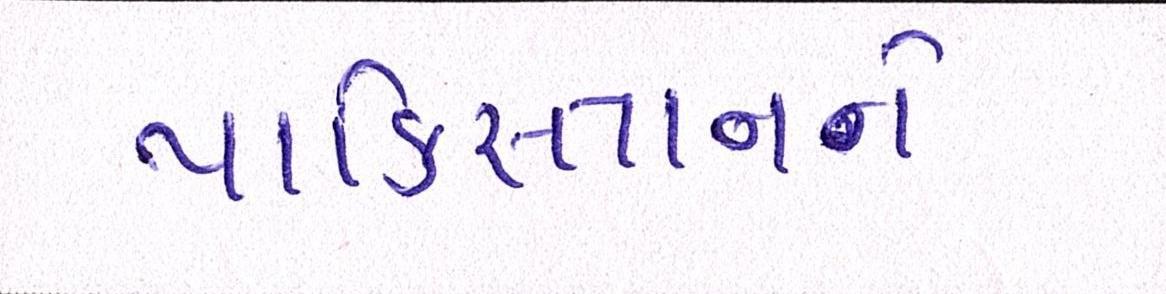 પાકિસ્તાનને